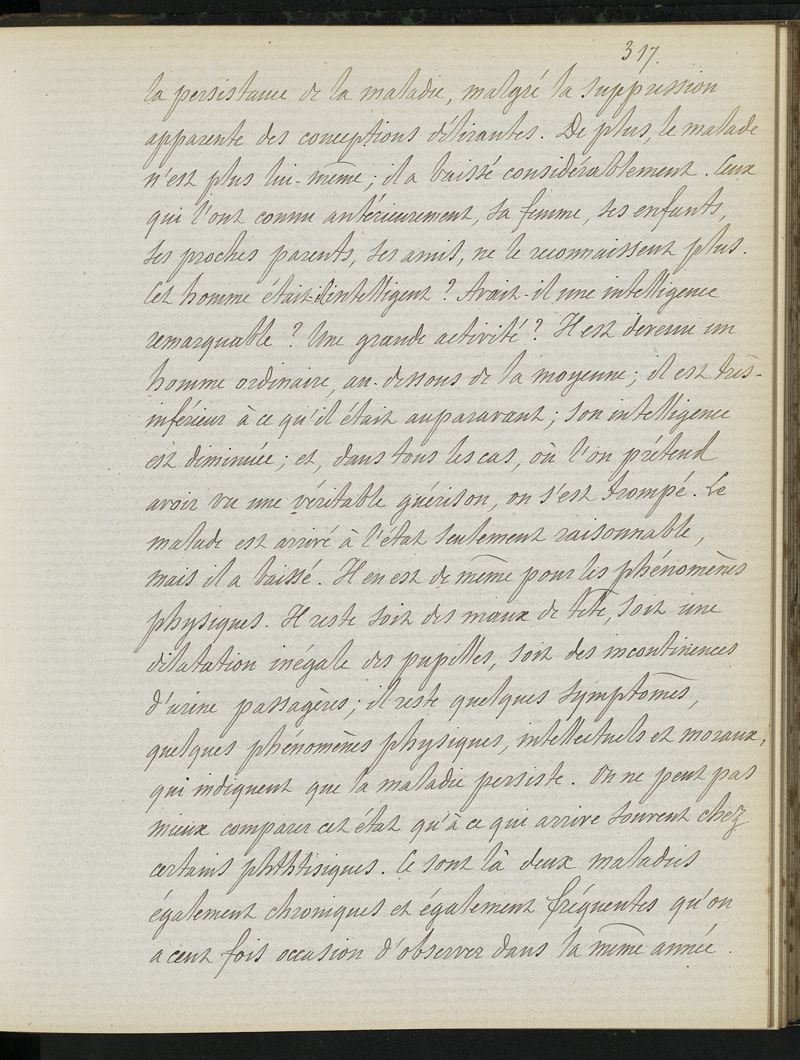 317.
la persistance de la maladie, malgré la suppression
apparente des conceptions délirantes. De plus, le malade
n'est plus lui-même; il a baissé considérablement. Ceux
qui l'ont connu antérieurement, sa femme, ses enfants,
ses proches parents, ses amis, ne le reconnaissent plus.
Cet homme était-il intelligent? Avait-il une intelligence
remarquable? Une grande activité? Il est devenu un
homme ordinaire, au-dessous de la moyenne; il est très-
inférieur à ce qu'il était auparavant; son intelligence
est diminuée; et, dans tous les cas, où l'on prétend
avoir vu une véritable guérison, on s'est trompé. Le
malade est arrivé à l'état seulement raisonnable,
mais il a baissé. Il en est de même pour les phénomènes
physiques. Il reste soit des maux de tête, soit une
dilatation inégale des pupilles, soit des incontinences
d'urine passagères; il reste quelques symptômes,
quelques phénomènes physiques, intellectuels et moraux,
qui indiquent que la maladie persiste. On ne peut pas
mieux comparer cet état qu'à ce qui arrive souvent chez
certains phthisiques. Ce sont là deux maladies
également chroniques et également fréquentes qu'on
a cent fois occasion d'observer dans la même année.